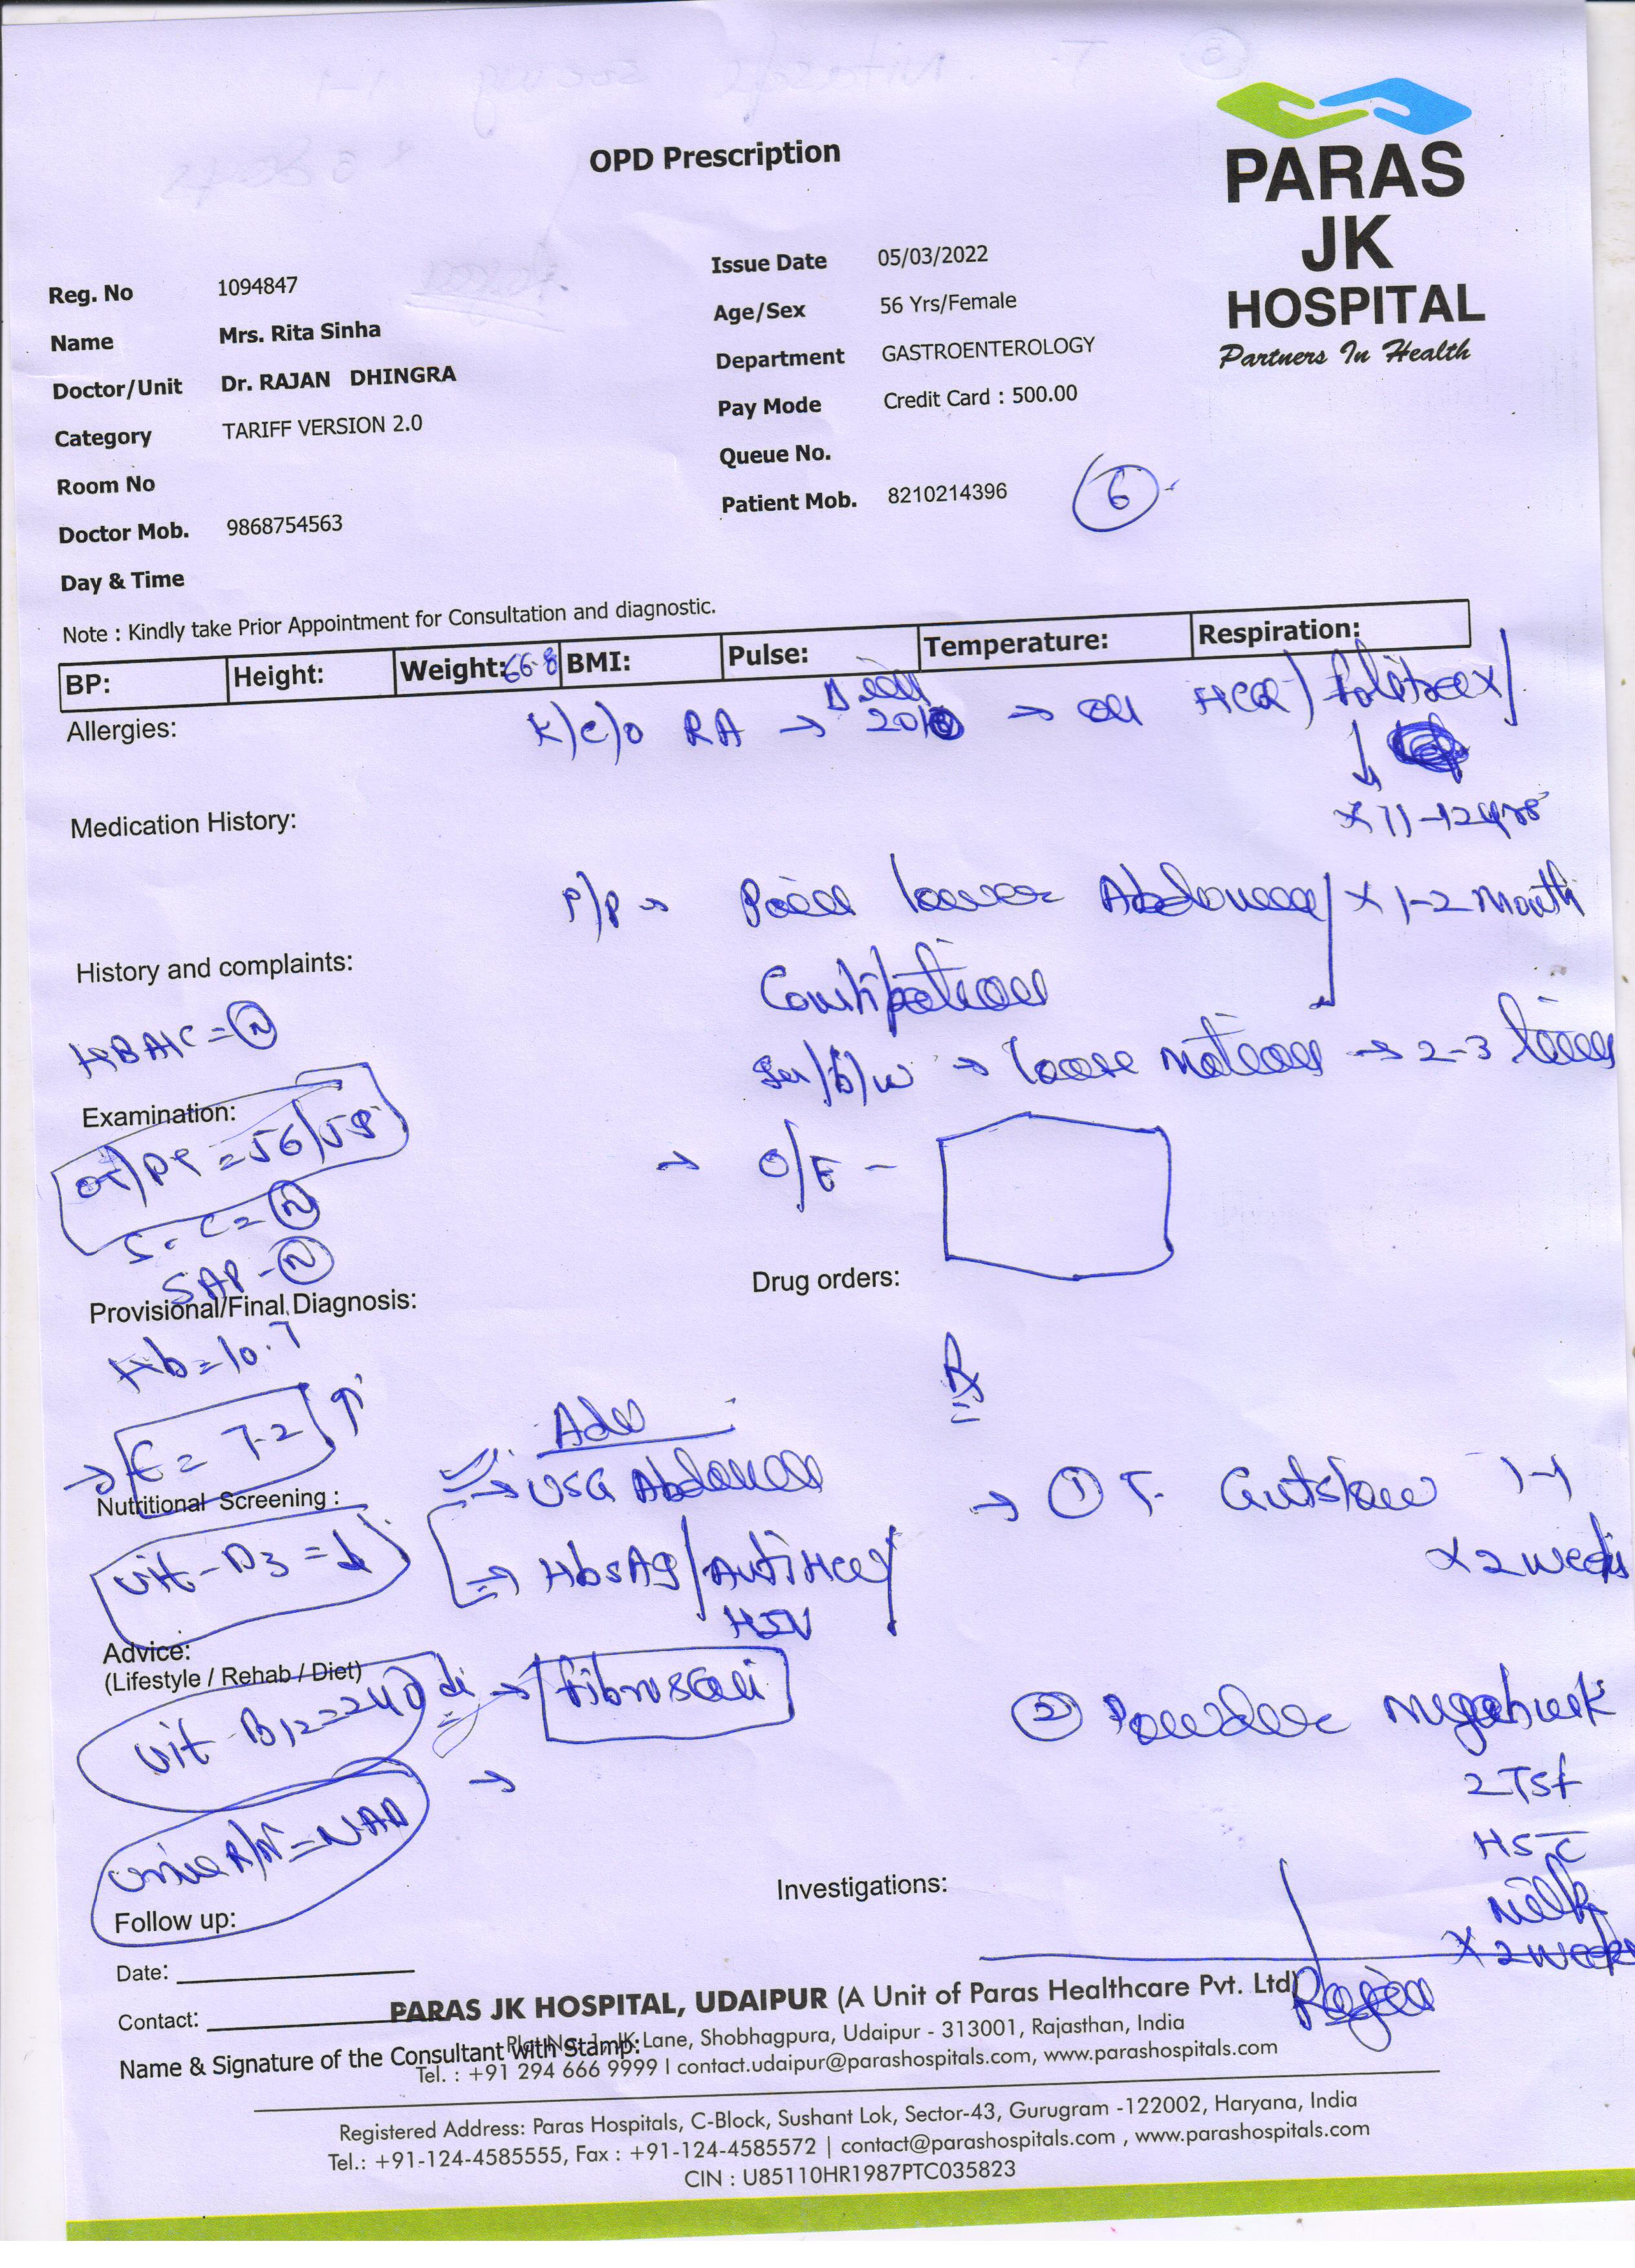 OPD Prescription
PARAS
JK
HOSPITAL
Partners In Health
Reg. No 1094847
Name Mrs. Rita Sinha
Doctor/Unit Dr. RAJAN DHINGRA
Category TARIFF VERSION 2.0
Room No
Doctor Mob. 9868754563
Day & Time
Issue Date 05/03/2022
Age/Sex 56 Yrs/Female
Department GASTROENTEROLOGY
Pay Mode Credit Card : 500.00
Queue No.
Patient Mob. 8210214396
6
Note : Kindly take Prior Appointment for Consultation and diagnostic.
BP: Height: Weight: 66.8 BMI: Pulse: Temperature: Respiration:
Allergies:
K/C/O RA → 2010 → on HCQ / Folitrax
x 11-12 yrs
Medication History:
P/P → Pain lower Abdomen x 1-2 Month
History and complaints:
Constipation
HBA1C = N
→ loose motions → 2-3 times
Examination:
OT/PT = 56/58
→ O/E -
S.C = N
SAP - N
Drug orders:
Provisional/Final Diagnosis:
Hb = 10.7
Rx
→ E = 7.2 ↑
Adv
→ USG Abdomen
→ ① T. Gutslow 1-1
x 2 weeks
Nutritional Screening :
Vit-D3 = ↓
→ HbsAg / Anti HCV /
HIV
Advice:
(Lifestyle / Rehab / Diet)
Vit B12 = 240
→ fibroscan
② Powder
2 Tsf
HS c̅
milk
x 2 weeks
→
Urine R/M = NAD
Investigations:
Follow up:
Date:
Contact:
Rajan
PARAS JK HOSPITAL, UDAIPUR (A Unit of Paras Healthcare Pvt. Ltd)
Plot No. 1, JK Lane, Shobhagpura, Udaipur - 313001, Rajasthan, India
Name & Signature of the Consultant with Stamp:
Tel. : +91 294 666 9999 I contact.udaipur@parashospitals.com, www.parashospitals.com
Registered Address: Paras Hospitals, C-Block, Sushant Lok, Sector-43, Gurugram -122002, Haryana, India
Tel.: +91-124-4585555, Fax : +91-124-4585572 | contact@parashospitals.com , www.parashospitals.com
CIN : U85110HR1987PTC035823